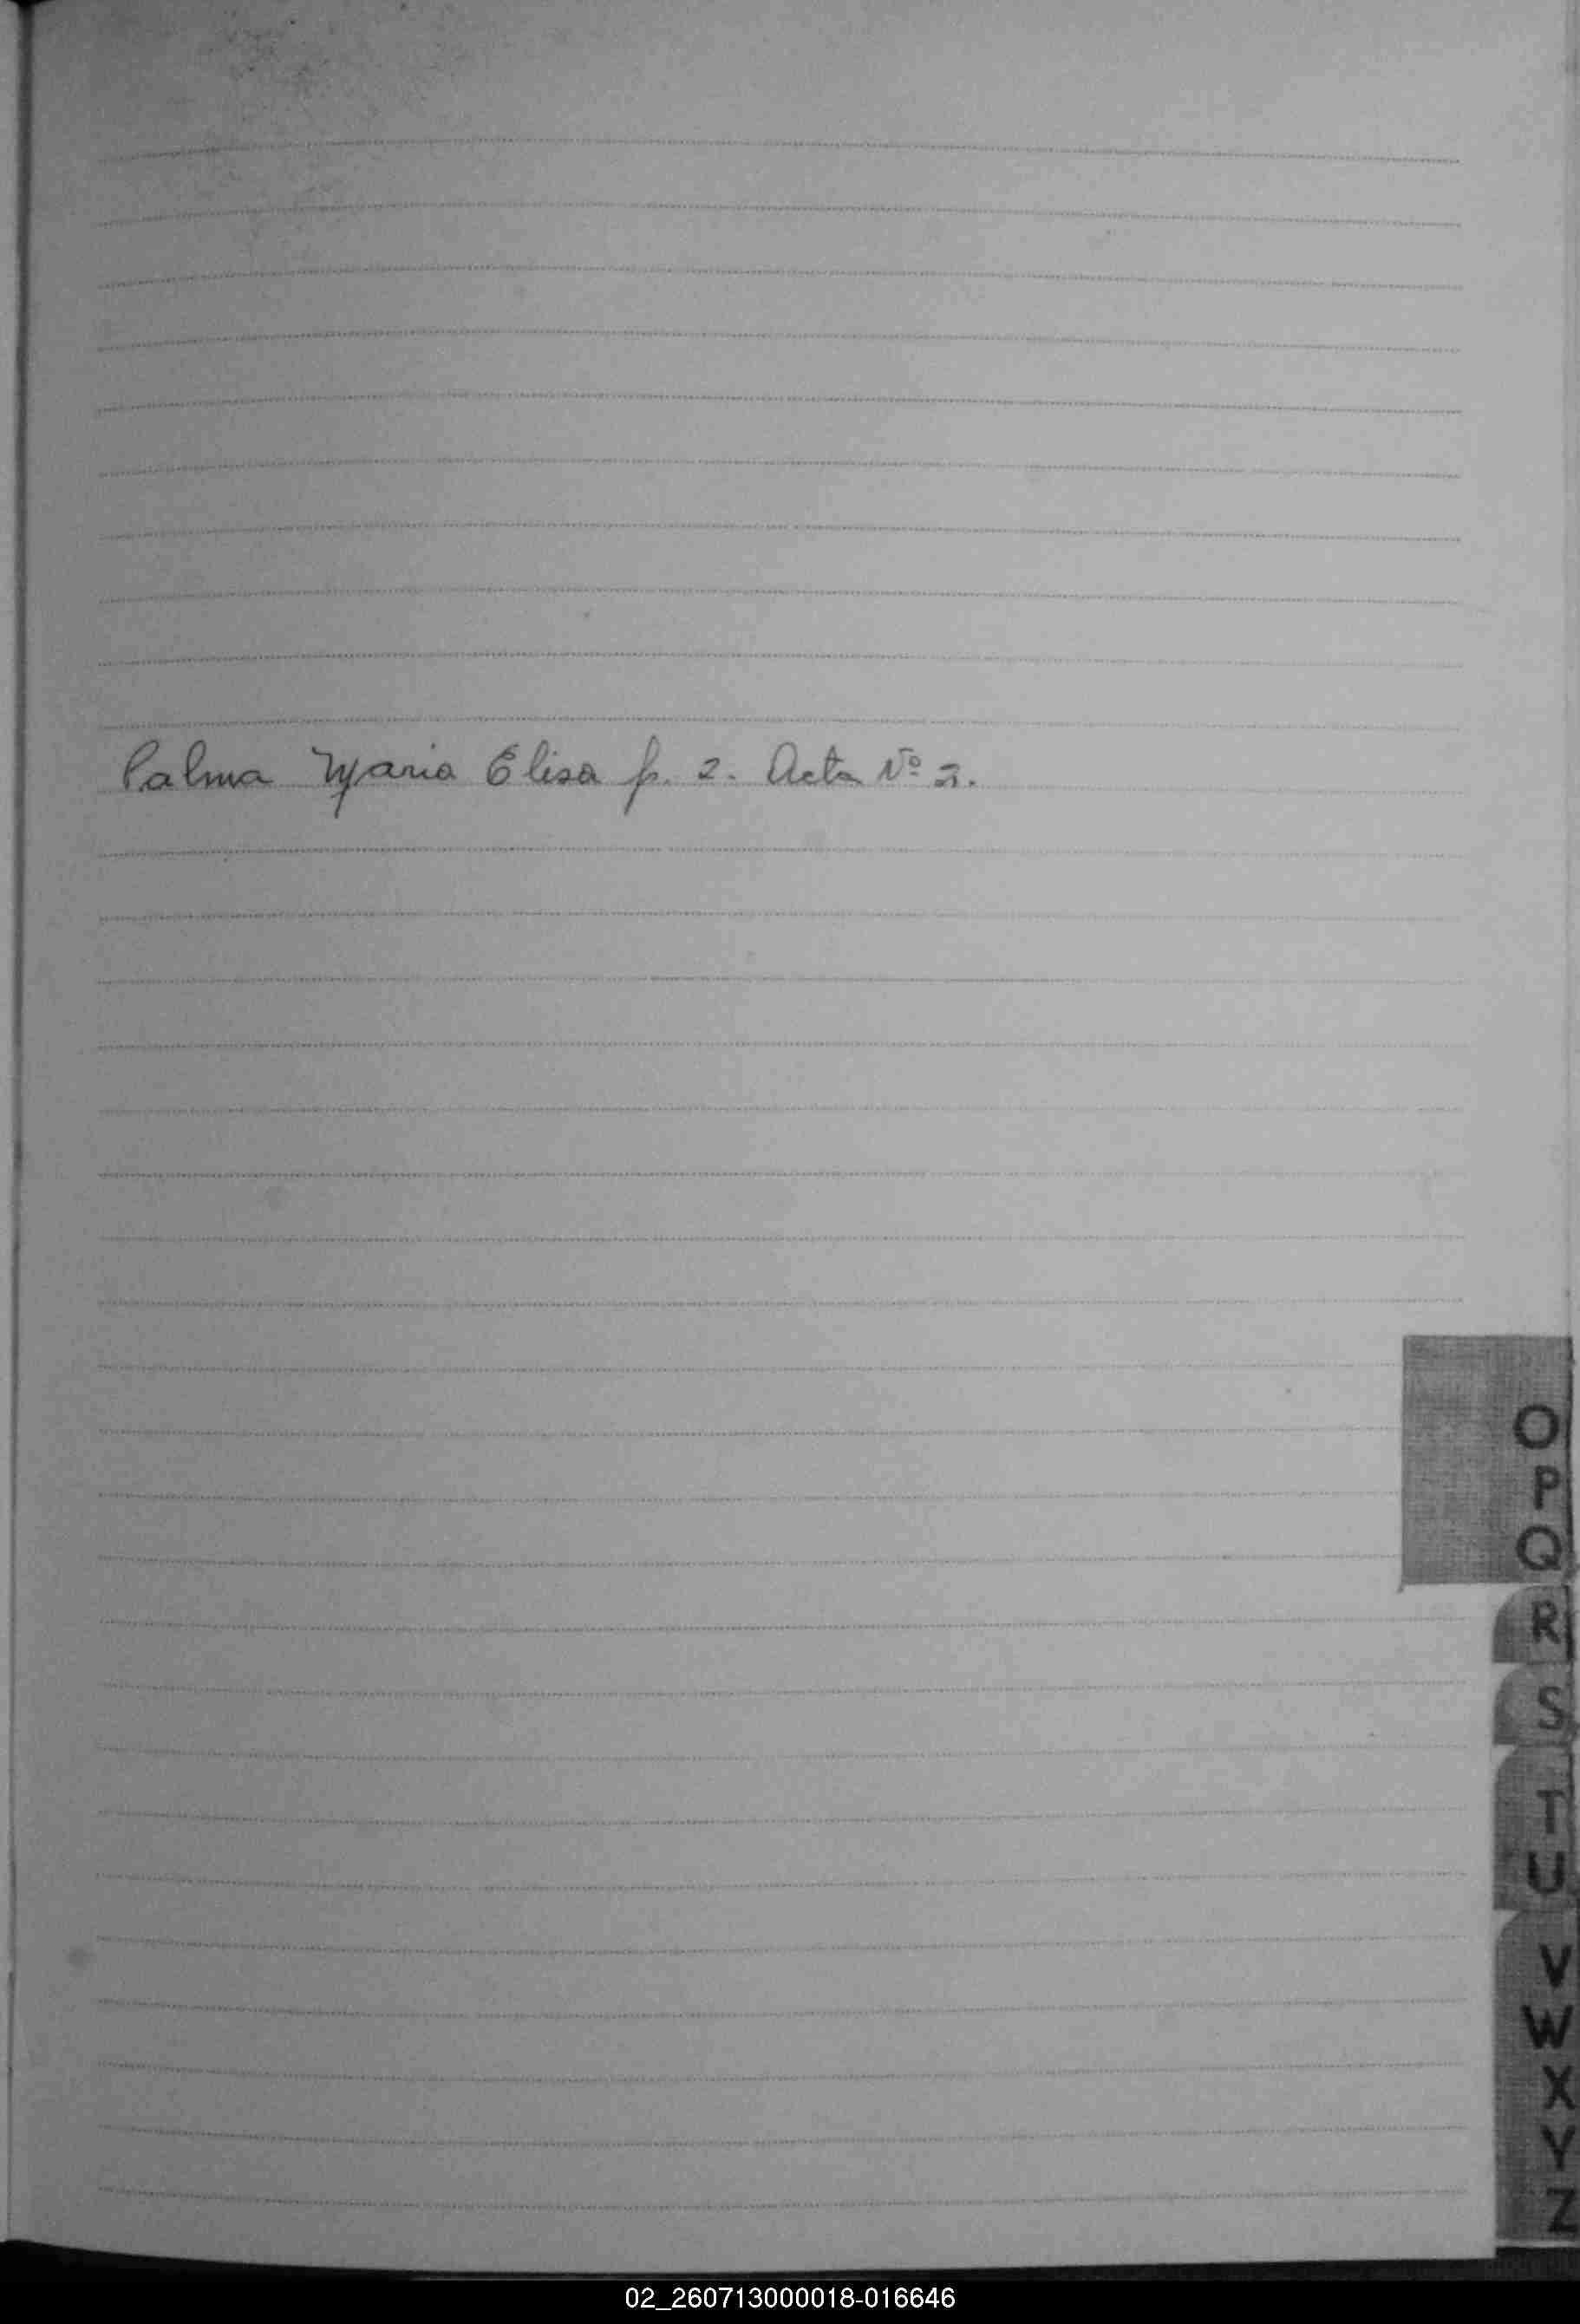 Palma Maria Elisa p. 2. Acta Nº 2.
O
P
Q
R
S
T
U
V
W
X
Y
Z
02_260713000018-016646